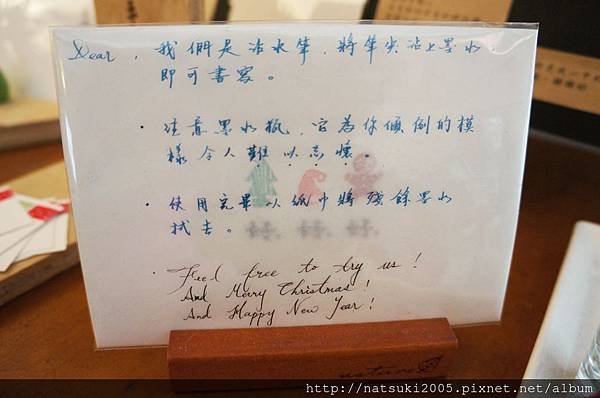 Dear, 我們是沾水筆,將筆尖沾上墨水
即可書寫。
· 注意墨水瓶,它為你傾倒的模
樣令人難以忘懷。
· 使用完畢以紙巾將殘餘墨水
拭去。
· Feel free to try us!
And Merry Christmas!
And Happy New Year!
http://natsuki2005.pixnet.net/album